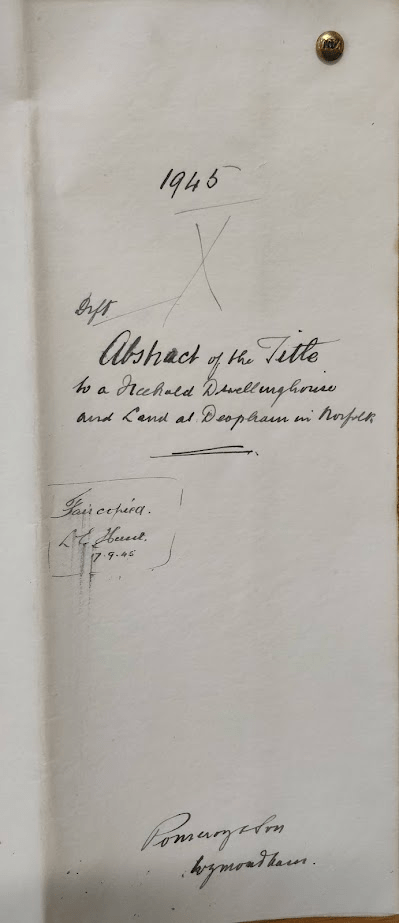 1945
Dft
Abstract of the Title
to a Freehold Dwellinghouse
and Land at Deopham in Norfolk
Fair copied.
Hunt.
7.9.45
Pomeroy & Son
Wymondham.